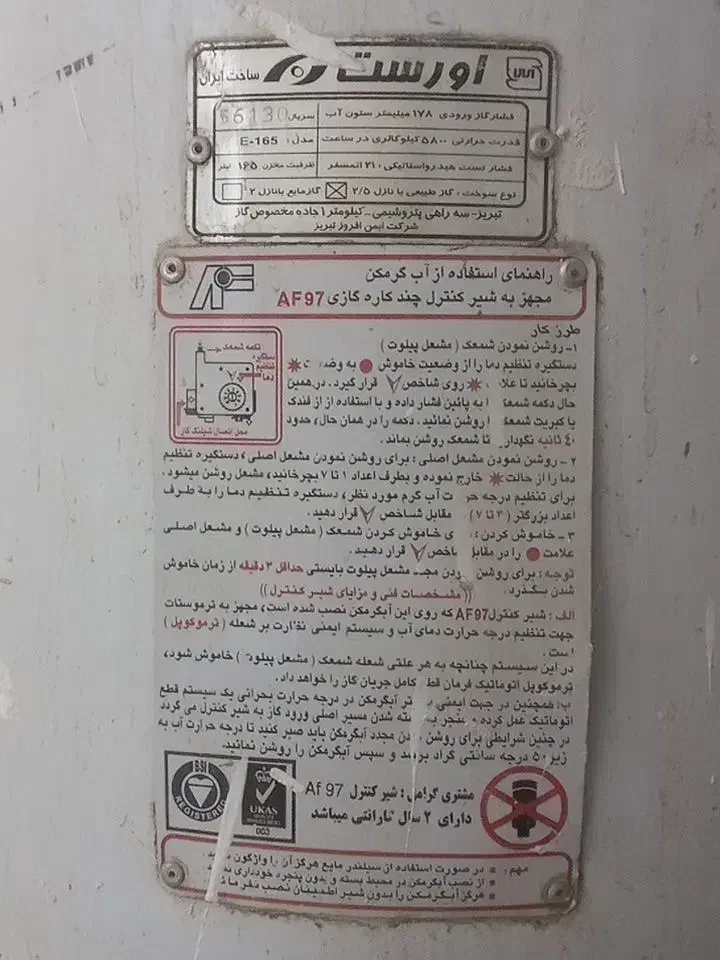 اورست
ساخت ایران
فشار گاز ورودی ۱۷۸ میلیمتر ستون آب سریال 66130
قدرت حرارتی ۵۸۰۰ کیلوکالری در ساعت مدل: E-165
فشار تست هیدرواستاتیکی: ۲۱ اتمسفر ظرفیت مخزن ۱۶۵ لیتر
نوع سوخت: گاز طبیعی با نازل ۲/۵ گاز مایع با نازل ۲
تبریز-سه راهی پتروشیمی-کیلومتر ۱ جاده مخصوص گاز
شرکت ایمن افروز تبریز
راهنمای استفاده از آب گرمکن
مجهز به شیر کنترل چند کاره گازی AF97
طرز کار
۱- روشن نمودن شمعک (مشعل پیلوت)
دستگیره تنظیم دما را از وضعیت خاموش به
بچرخانید تا روی شاخص قرار گیرد. در همین
حال دکمه شمعک را به پائین فشار داده و با استفاده از فندک
یا کبریت شمعک را روشن نمائید. دکمه را در همان حال، حدود
۴۰ ثانیه نگهدارید تا شمعک روشن بماند.
تکمه شمعک
دستگیره
تنظیم
دما
محل اتصال شیلنگ گاز
۲- روشن نمودن مشعل اصلی: برای روشن نمودن مشعل اصلی، دستگیره تنظیم
دما را از حالت خارج نموده و بطرف اعداد ۱ تا ۷ بچرخانید، مشعل روشن میشود.
برای تنظیم درجه حرارت آب گرم مورد نظر، دستگیره تنظیم دما را به طرف
اعداد بزرگتر (۲ تا ۷) مقابل شاخص قرار دهید.
۳- خاموش کردن: برای خاموش کردن شمعک (مشعل پیلوت) و مشعل اصلی
علامت را در مقابل شاخص قرار دهید.
توجه: برای روشن کردن مجدد مشعل پیلوت بایستی حداقل ۳ دقیقه از زمان خاموش
شدن بگذرد.
((مشخصات فنی و مزایای شیر کنترل))
الف: شیر کنترل AF97 که روی این آبگرمکن نصب شده است، مجهز به ترموستات
جهت تنظیم درجه حرارت دمای آب و سیستم ایمنی نظارت بر شعله (ترموکوپل)
است.
در این سیستم چنانچه به هر علتی شعله شمعک (مشعل پیلوت) خاموش شود،
ترموکوپل اتوماتیک فرمان قطع کامل جریان گاز را خواهد داد.
ب: همچنین در جهت ایمنی آبگرمکن در درجه حرارت بحرانی یک سیستم قطع
اتوماتیک عمل کرده و منجر به بسته شدن مسیر اصلی ورود گاز به شیر کنترل می گردد
در چنین شرایطی برای روشن شدن مجدد آبگرمکن باید صبر کنید تا درجه حرارت آب به
زیر ۵۰ درجه سانتی گراد برسد و سپس آبگرمکن را روشن نمائید.
BSI
REGISTERED
UKAS
003
مشتری گرامی: شیر کنترل Af 97
دارای ۲ سال گارانتی میباشد
مهم: در صورت استفاده از سیلندر مایع هرگز آن را واژگون
از نصب آبگرمکن در محیط بسته و بدون پنجره خودداری
هرگز آبگرمکن را بدون شیر اطمینان نصب